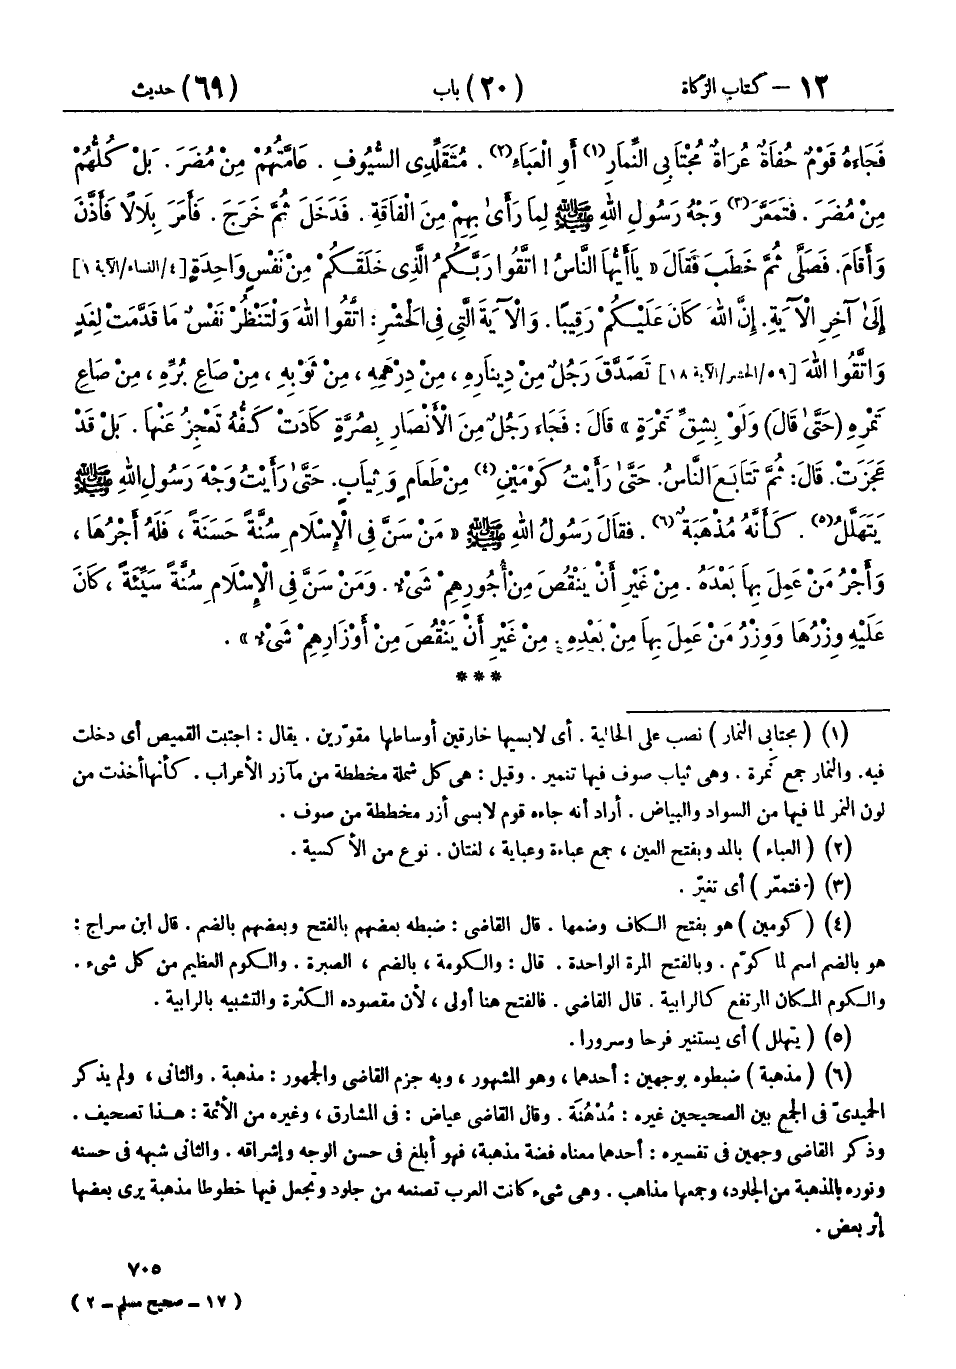 ١٢ – كتاب الزكاة (٢٠) باب (٦٩) حديث
فَجَاءَهُ قَوْمٌ حُفَاةٌ عُرَاةٌ مُجْتَابِي النِّمَارِ(١) أَوِ الْعَبَاءِ(٢) . مُتَقَلِّدِى السُّيُوفِ . عَامَّتُهُمْ مِنْ مُضَرَ . بَلْ كُلُّهُمْ
مِنْ مُضَرَ . فَتَمَعَّرَ(٣) وَجْهُ رَسُولِ اللهِ ﷺ لِمَا رَأَىٰ بِهِمْ مِنَ الْفَاقَةِ . فَدَخَلَ ثُمَّ خَرَجَ . فَأَمَرَ بِلَالًا فَأَذَّنَ
وَأَقَامَ. فَصَلَّى ثُمَّ خَطَبَ فَقَالَ « يَاأَيُّهَا النَّاسُ ! اتَّقُوا رَبَّكُمُ الَّذِى خَلَقَكُمْ مِنْ نَفْسٍ وَاحِدَةٍ [٤/النساء/الآية ١]
إِلَىٰ آخِرِ الْآيَةِ. إِنَّ اللهَ كَانَ عَلَيْكُمْ رَقِيبًا. وَالْآيَةَ الَّتِي فِى الْحَشْرِ: اتَّقُوا اللهَ وَلْتَنْظُرْ نَفْسٌ مَا قَدَّمَتْ لِغَدٍ
وَاتَّقُوا اللهَ [٥٩/الحشر/الآية ١٨] تَصَدَّقَ رَجُلٌ مِنْ دِينَارِهِ ، مِنْ دِرْهَمِهِ ، مِنْ ثَوْبِهِ ، مِنْ صَاعِ بُرِّهِ ، مِنْ صَاعِ
تَمْرِهِ (حَتَّىٰ قَالَ) وَلَوْ بِشِقِّ تَمْرَةٍ » قَالَ : فَجَاءَ رَجُلٌ مِنَ الْأَنْصَارِ بِصُرَّةٍ كَادَتْ كَفُّهُ تَعْجِزُ عَنْهَا . بَلْ قَدْ
عَجَزَتْ. قَالَ: ثُمَّ تَتَابَعَ النَّاسُ. حَتَّىٰ رَأَيْتُ كَوْمَيْنِ(٤) مِنْ طَعَامٍ وَثِيَابٍ. حَتَّىٰ رَأَيْتُ وَجْهَ رَسُولِ اللهِ ﷺ
يَتَهَلَّلُ(٥) . كَأَنَّهُ مُذْهَبَةٌ(٦) . فَقَالَ رَسُولُ اللهِ ﷺ « مَنْ سَنَّ فِى الْإِسْلَامِ سُنَّةً حَسَنَةً ، فَلَهُ أَجْرُهَا ،
وَأَجْرُ مَنْ عَمِلَ بِهَا بَعْدَهُ . مِنْ غَيْرِ أَنْ يَنْقُصَ مِنْ أُجُورِهِمْ شَىْءٌ . وَمَنْ سَنَّ فِى الْإِسْلَامِ سُنَّةً سَيِّئَةً ، كَانَ
عَلَيْهِ وِزْرُهَا وَوِزْرُ مَنْ عَمِلَ بِهَا مِنْ بَعْدِهِ . مِنْ غَيْرِ أَنْ يَنْقُصَ مِنْ أَوْزَارِهِمْ شَىْءٌ » .
* * *
(١) ( مجتابي النمار ) نصب على الحالية . أى لابسيها خارقين أوساطها مقوّرين . يقال : اجتبت القميص أى دخلت
فيه. والنمار جمع نَمرة . وهى ثياب صوف فيها تنمير . وقيل : هى كل شملة مخططة من مآزر الأعراب . كأنها أخذت من
لون النمر لما فيها من السواد والبياض . أراد أنه جاءه قوم لابسى أزر مخططة من صوف .
(٢) ( العباء ) بالمد وبفتح العين ، جمع عباءة وعباية ، لغتان . نوع من الأكسية .
(٣) ( فتمعّر ) أى تغيّر .
(٤) ( كومين ) هو بفتح الكاف وضمها . قال القاضى : ضبطه بعضهم بالفتح وبعضهم بالضم . قال ابن سراج :
هو بالضم اسم لما كوّم . وبالفتح المرة الواحدة . قال : والكومة ، بالضم ، الصبرة . والكوم العظيم من كل شىء .
والكوم المكان المرتفع كالرابية . قال القاضى . فالفتح هنا أولى ، لأن مقصوده الكثرة والتشبيه بالرابية .
(٥) ( يتهلل ) أى يستنير فرحا وسرورا .
(٦) ( مذهبة ) ضبطوه بوجهين : أحدهما ، وهو المشهور ، وبه جزم القاضى والجمهور : مذهبة . والثانى ، ولم يذكر
الحميدىّ فى الجمع بين الصحيحين غيره : مُدْهُنَة . وقال القاضى عياض : فى المشارق ، وغيره من الأئمة : هذا تصحيف .
وذكر القاضى وجهين فى تفسيره : أحدهما معناه فضة مذهبة، فهو أبلغ فى حسن الوجه وإشراقه . والثانى شبهه فى حسنه
ونوره بالمذهبة من الجلود، وجمعها مذاهب . وهى شىء كانت العرب تصنعه من جلود وتجعل فيها خطوطا مذهبة يرى بعضها
إثر بعض .
٧٠٥
( ١٧ – صحيح مسلم – ٢ )